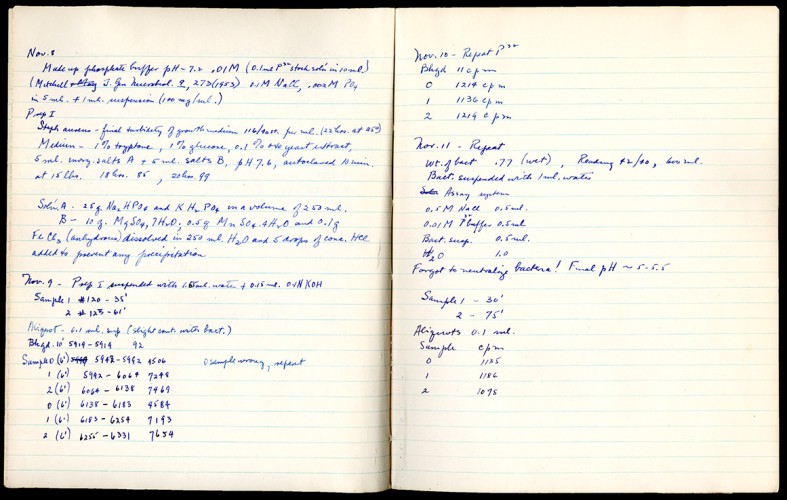 Nov. 8
Made up phosphate buffer pH ~ 7.2 .01M (0.1 ml P32 stock soln in 10 ml)
(Mitchell J. Gen Microbiol. 9, 273 (1953) 0.1M NaCl, .002M PO4
in 5 ml. + 1 ml. suspension (100 mg/ml.)
Prep I
Staph aureus - final turbidity of growth medium 116/ per ml. (22 hrs. at 25°)
Medium - 1% tryptone, 1% glucose, 0.1% yeast extract,
5 ml. inorg. salts A + 5 ml. salts B, pH 7.6, autoclaved 10 min.
at 15 lbs. 18 hrs. 85, 20 hrs. 99
Soln. A - 25 g. Na2HPO4 and KH2PO4 in a volume of 250 ml.
B - 10 g. MgSO4.7H2O, 0.5 g MnSO4.4H2O and 0.1 g
FeCl3 (anhydrous) dissolved in 250 ml. H2O and 5 drops of conc. HCl
added to prevent any precipitation
Nov. 9 - Prep I suspended with ml. water + 0.15 ml. KOH
Sample 1 #120 - 35'
2 #123 - 61'
Aliquot - 0.1 ml. sup (slight cont. with bact.)
Bkgd. 10' 5914 - 5914 92
Sample 0 (6') 5942 - 5992 4506 0 sample wrong, repeat
1 (6') 5992 - 6064 7248
2 (6') 6064 - 6138 7469
0 (6') 6138 - 6183 4584
1 (6') 6183 - 6254 7193
2 (6') 6255 - 6331 7654
Nov. 10 - Repeat P32
Bkgd 11 cpm
0 1214 cpm
1 1136 cpm
2 1219 cpm
Nov. 11 - Repeat
Wt. of bact .77 (wet), Reading 42/40, 600 ml.
Bact. suspended with 1 ml. water
Assay system
0.5 M NaCl 0.5 ml.
0.01 M P32 buffer 0.5 ml
Bact. susp. 0.5 ml.
H2O 1.0
Forgot to neutralize bacteria! Final pH ~ 5-5.5
Sample 1 - 30'
2 - 75'
Aliquots 0.1 ml.
Sample cpm
0 1125
1 1186
2 1098